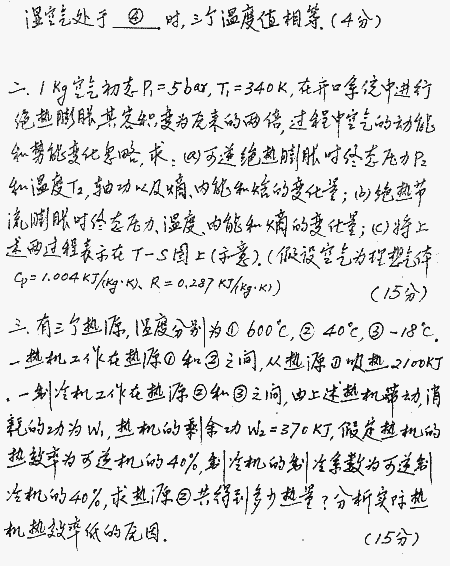 湿空气处于 ④ 时,三个温度值相等.(4分)
二. 1Kg空气初态P₁=5bar, T₁=340K, 在开口系统中进行
绝热膨胀,其容积变为原来的两倍,过程中空气的动能
和势能变化忽略,求:(a)可逆绝热膨胀时终态压力P₂
和温度T₂,轴功以及熵、内能和焓的变化量;(b)绝热节
流膨胀时终态压力、温度、内能和熵的变化量;(c)将上
述两过程表示在T-S图上(示意).(假设空气为理想气体
Cp=1.004KJ/(kg·K)、R=0.287KJ/(kg·K)) (15分)
三.有三个热源,温度分别为①600℃,②40℃,③-18℃.
一热机工作在热源①和②之间,从热源①吸热2100KJ
.一制冷机工作在热源②和③之间,由上述热机带动,消
耗的功为W₁,热机的剩余功W₂=370KJ,假定热机的
热效率为可逆机的40%,制冷机的制冷系数为可逆制
冷机的40%,求热源②共得到多少热量?分析实际热
机热效率低的原因. (15分)